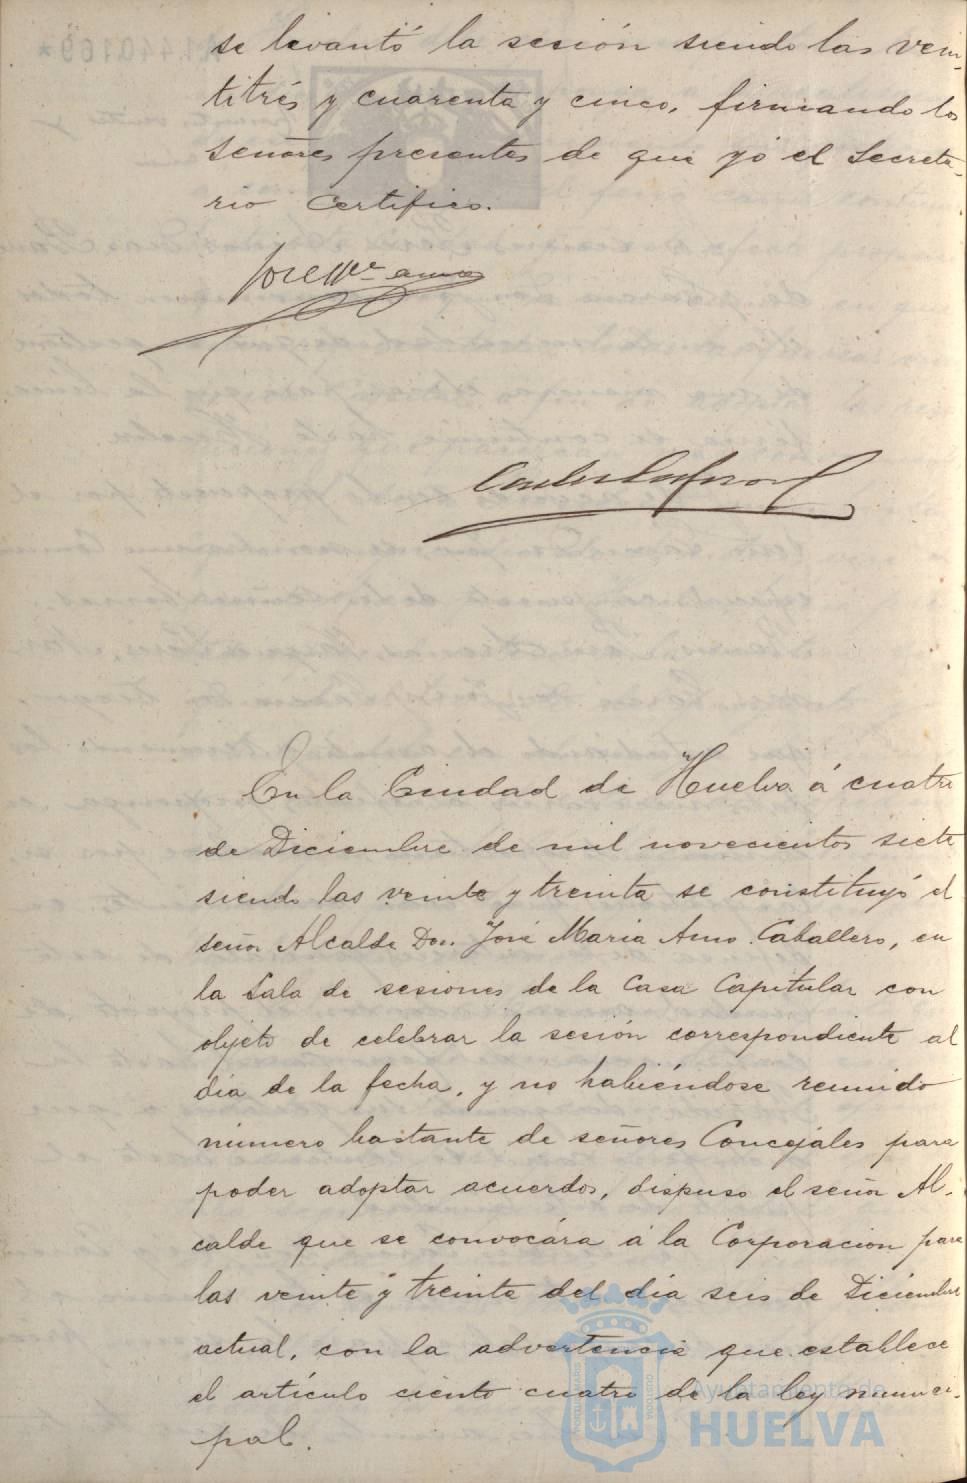 se levantó la sesión siendo las vein-
titrés y cuarenta y cinco, firmando los
señores presentes de que yó el Secreta-
rio certifico.
José Mª amo
En la Ciudad de Huelva á cuatro
de Diciembre de mil novecientos siete
siendo las veinte y treinta se constituyó el
señor Alcalde Don José Maria Amo Caballero, en
la Sala de sesiones de la Casa Capitular con
objeto de celebrar la sesión correspondiente al
día de la fecha, y no habiéndose reunido
número bastante de señores Concejales para
poder adoptar acuerdos, dispuso el señor Al-
calde que se convocára á la Corporacion para
las veinte y treinta del día seis de Diciembre
actual, con la advertencia que establece
el artículo ciento cuatro de la ley munici-
pal.
Ayuntamiento de
HUELVA